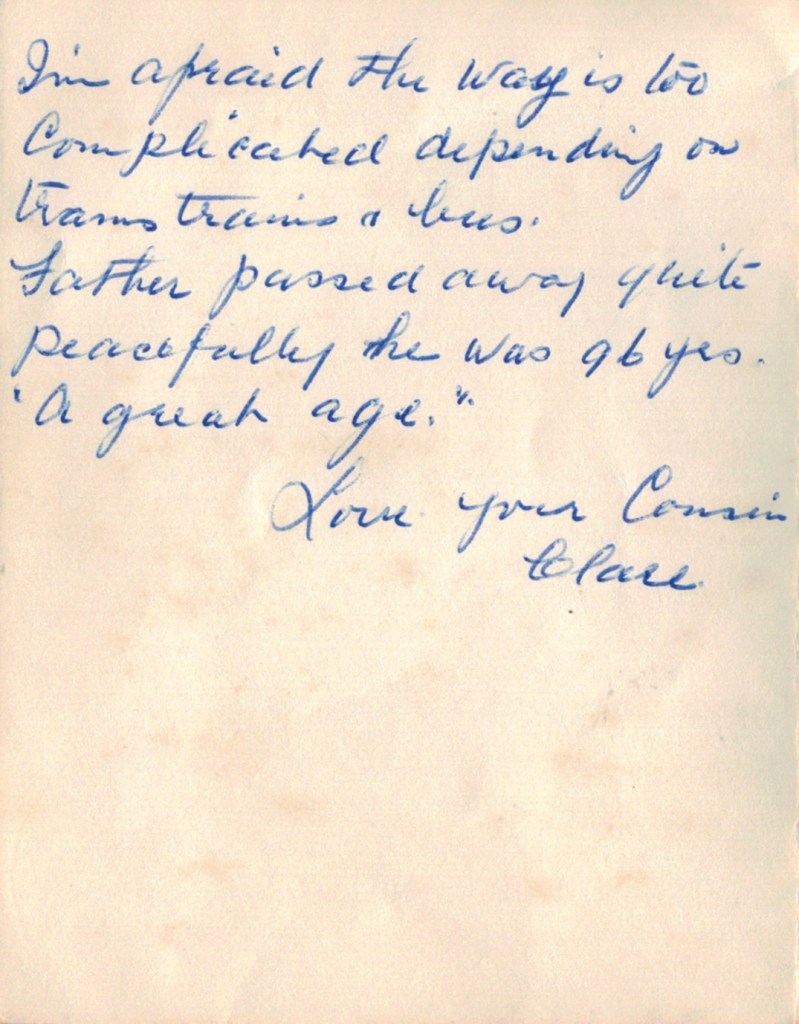 I'm afraid the way is too
Complicated depending on
trams trains & bus.
Father passed away quite
peacefully he was 96 yrs.
"A great age."
Love your Cousin
Clare.